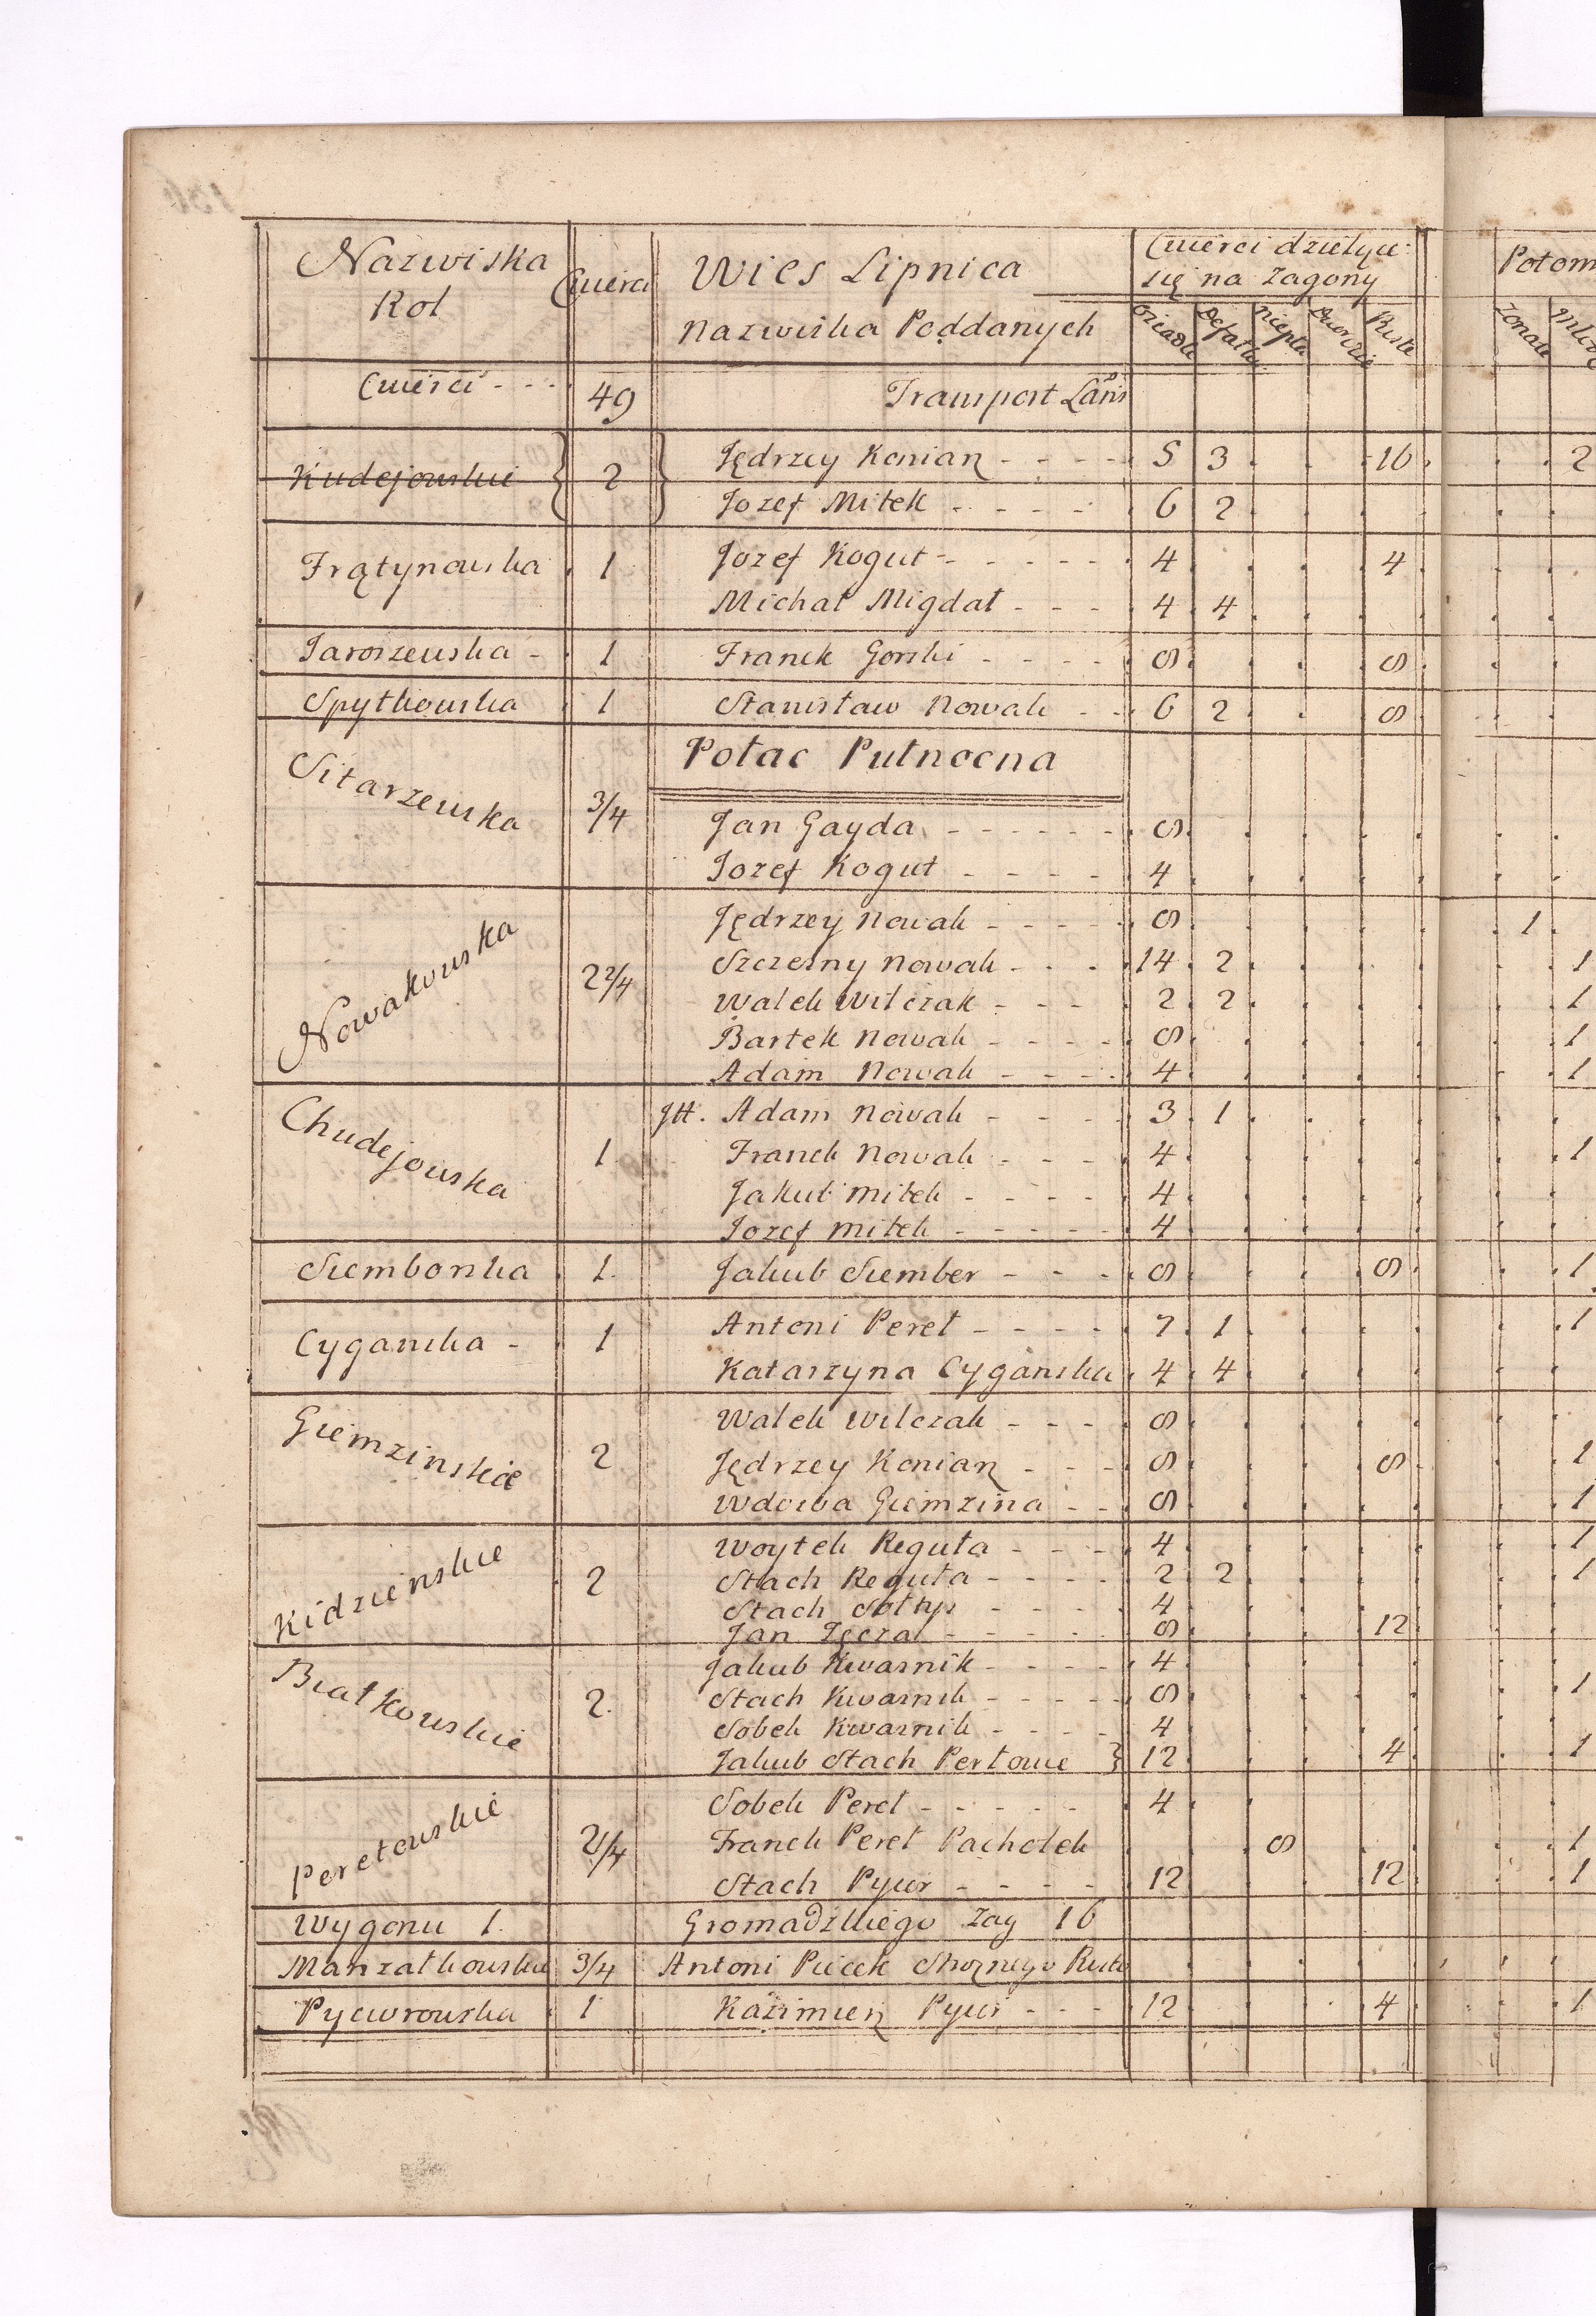 Nazwiska Rol Cwierci Wies Lipnica Cwierci dzielące się na Zagony Potom
Nazwiska Poddanych Osiadłe Defalk Niepła Dworskie Puste Żonate Młodz
Cwierci - - - 49 Transport Łanś
Kudejowskie 2 Jędrzey Koniarz - - - - 5 3 16 2
Jozef Mitek - - - - 6 2
Frątynowska 1 Jozef Kogut - - - - - 4 4
Michał Migdał - - - 4 4
Jaroszewska - 1 Franek Gorski - - - - 8 8
Spytkowska 1 Stanisław Nowak - - 6 2 8
Sitarzewska 3/4 Połac Pułnocna
Jan Gayda - - - - - - 8
Jozef Kogut - - - - 4
Nowakowska 2 2/4 Jędrzey Nowak - - - - 8 1
Szczesny Nowak - - - 14 2 1
Walek Wilczak - - - 2 2 1
Bartek Nowak - - - - 8 1
Adam Nowak - - - - 4 1
Chudejowska 1 Jtt. Adam Nowak - - - - 3 1
Franek Nowak - - - 4 1
Jakub Mitek - - - - 4
Jozef Mitek - - - - - 4
Siemborska 1. Jakub Siember - - - 8 8 1
Cygańska - 1 Antoni Peret - - - - 7 1 1
Katarzyna Cygańska 4 4
Giemzinskie 2 Walek Wilczak - - - 8
Jędrzey Koniarz - - - 8 8 1
Wdowa Giemzina - - 8 1
Kidzienskie 2 Woytek Reguła - - - 4 1
Stach Reguła - - - - 2 2 1
Stach Sołtys - - - - 4
Jan Zęczał - - - - - 8 12
Białkowskie 2. Jakub Kwasnik - - - - 4
Stach Kwasnik - - - - - 8 1
Sobek Kwasnik - - - - 4
Jakub Stach Pertowie 12 4 1
Peretowskie 2 1/4 Sobek Peret - - - - - 4
Franek Peret Pachołek 8 1
Stach Pywr - - - - 12 12 1
Wygonu 1. Gromadzkiego Zag 16
Marszałkowskie 3/4 Antoni Piecek
Pycwrowska 1 Kazimierz Pywr - - - 12 4 1